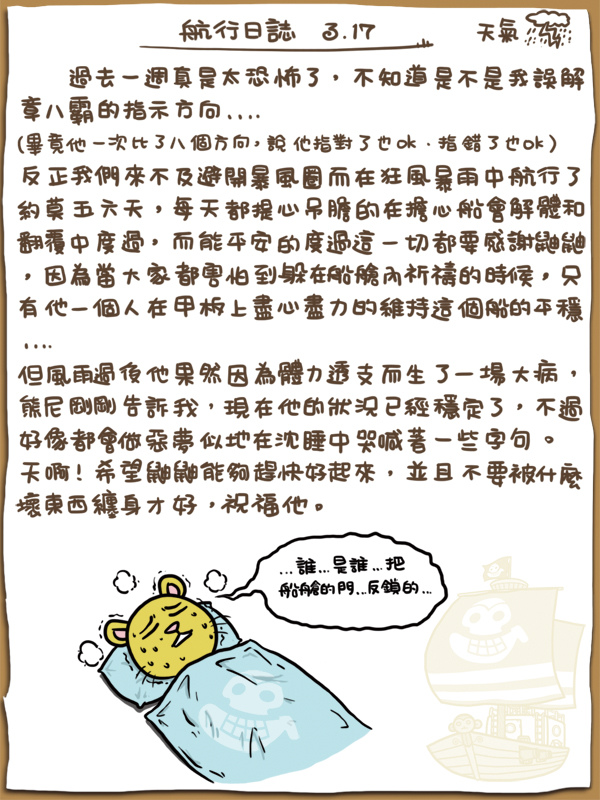 航行日誌 3.17 天氣
過去一週真是太恐怖了，不知道是不是我誤解
章八霸的指示方向....
(畢竟他一次比了八個方向，說他指對了也ok．指錯了也ok)
反正我們來不及避開暴風圈而在狂風暴雨中航行了
約莫五六天，每天都提心吊膽的在擔心船會解體和
翻覆中度過，而能平安的度過這一切都要感謝鼬鼬
，因為當大家都害怕到躲在船艙內祈禱的時候，只
有他一個人在甲板上盡心盡力的維持這個船的平穩
....
但風雨過後他果然因為體力透支而生了一場大病，
熊尼剛剛告訴我，現在他的狀況已經穩定了，不過
好像都會做惡夢似地在沈睡中哭喊著一些字句。
天啊！希望鼬鼬能夠趕快好起來，並且不要被什麼
壞東西纏身才好，祝福他。
...誰...是誰...把
船艙的門...反鎖的...